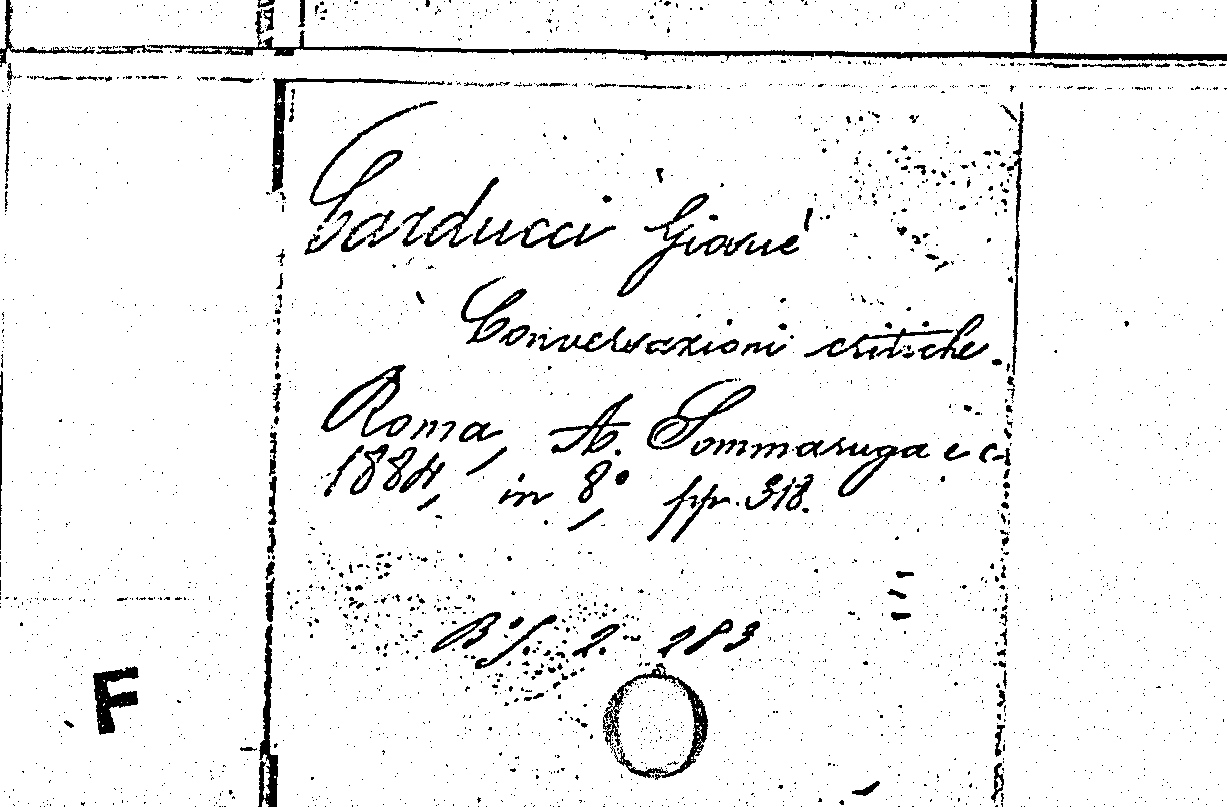 Carducci Giosuè
Conversazioni critiche.
Roma, A. Sommaruga e c.
1884, in 8°, pp. 318.
B.S. 2. 283
F